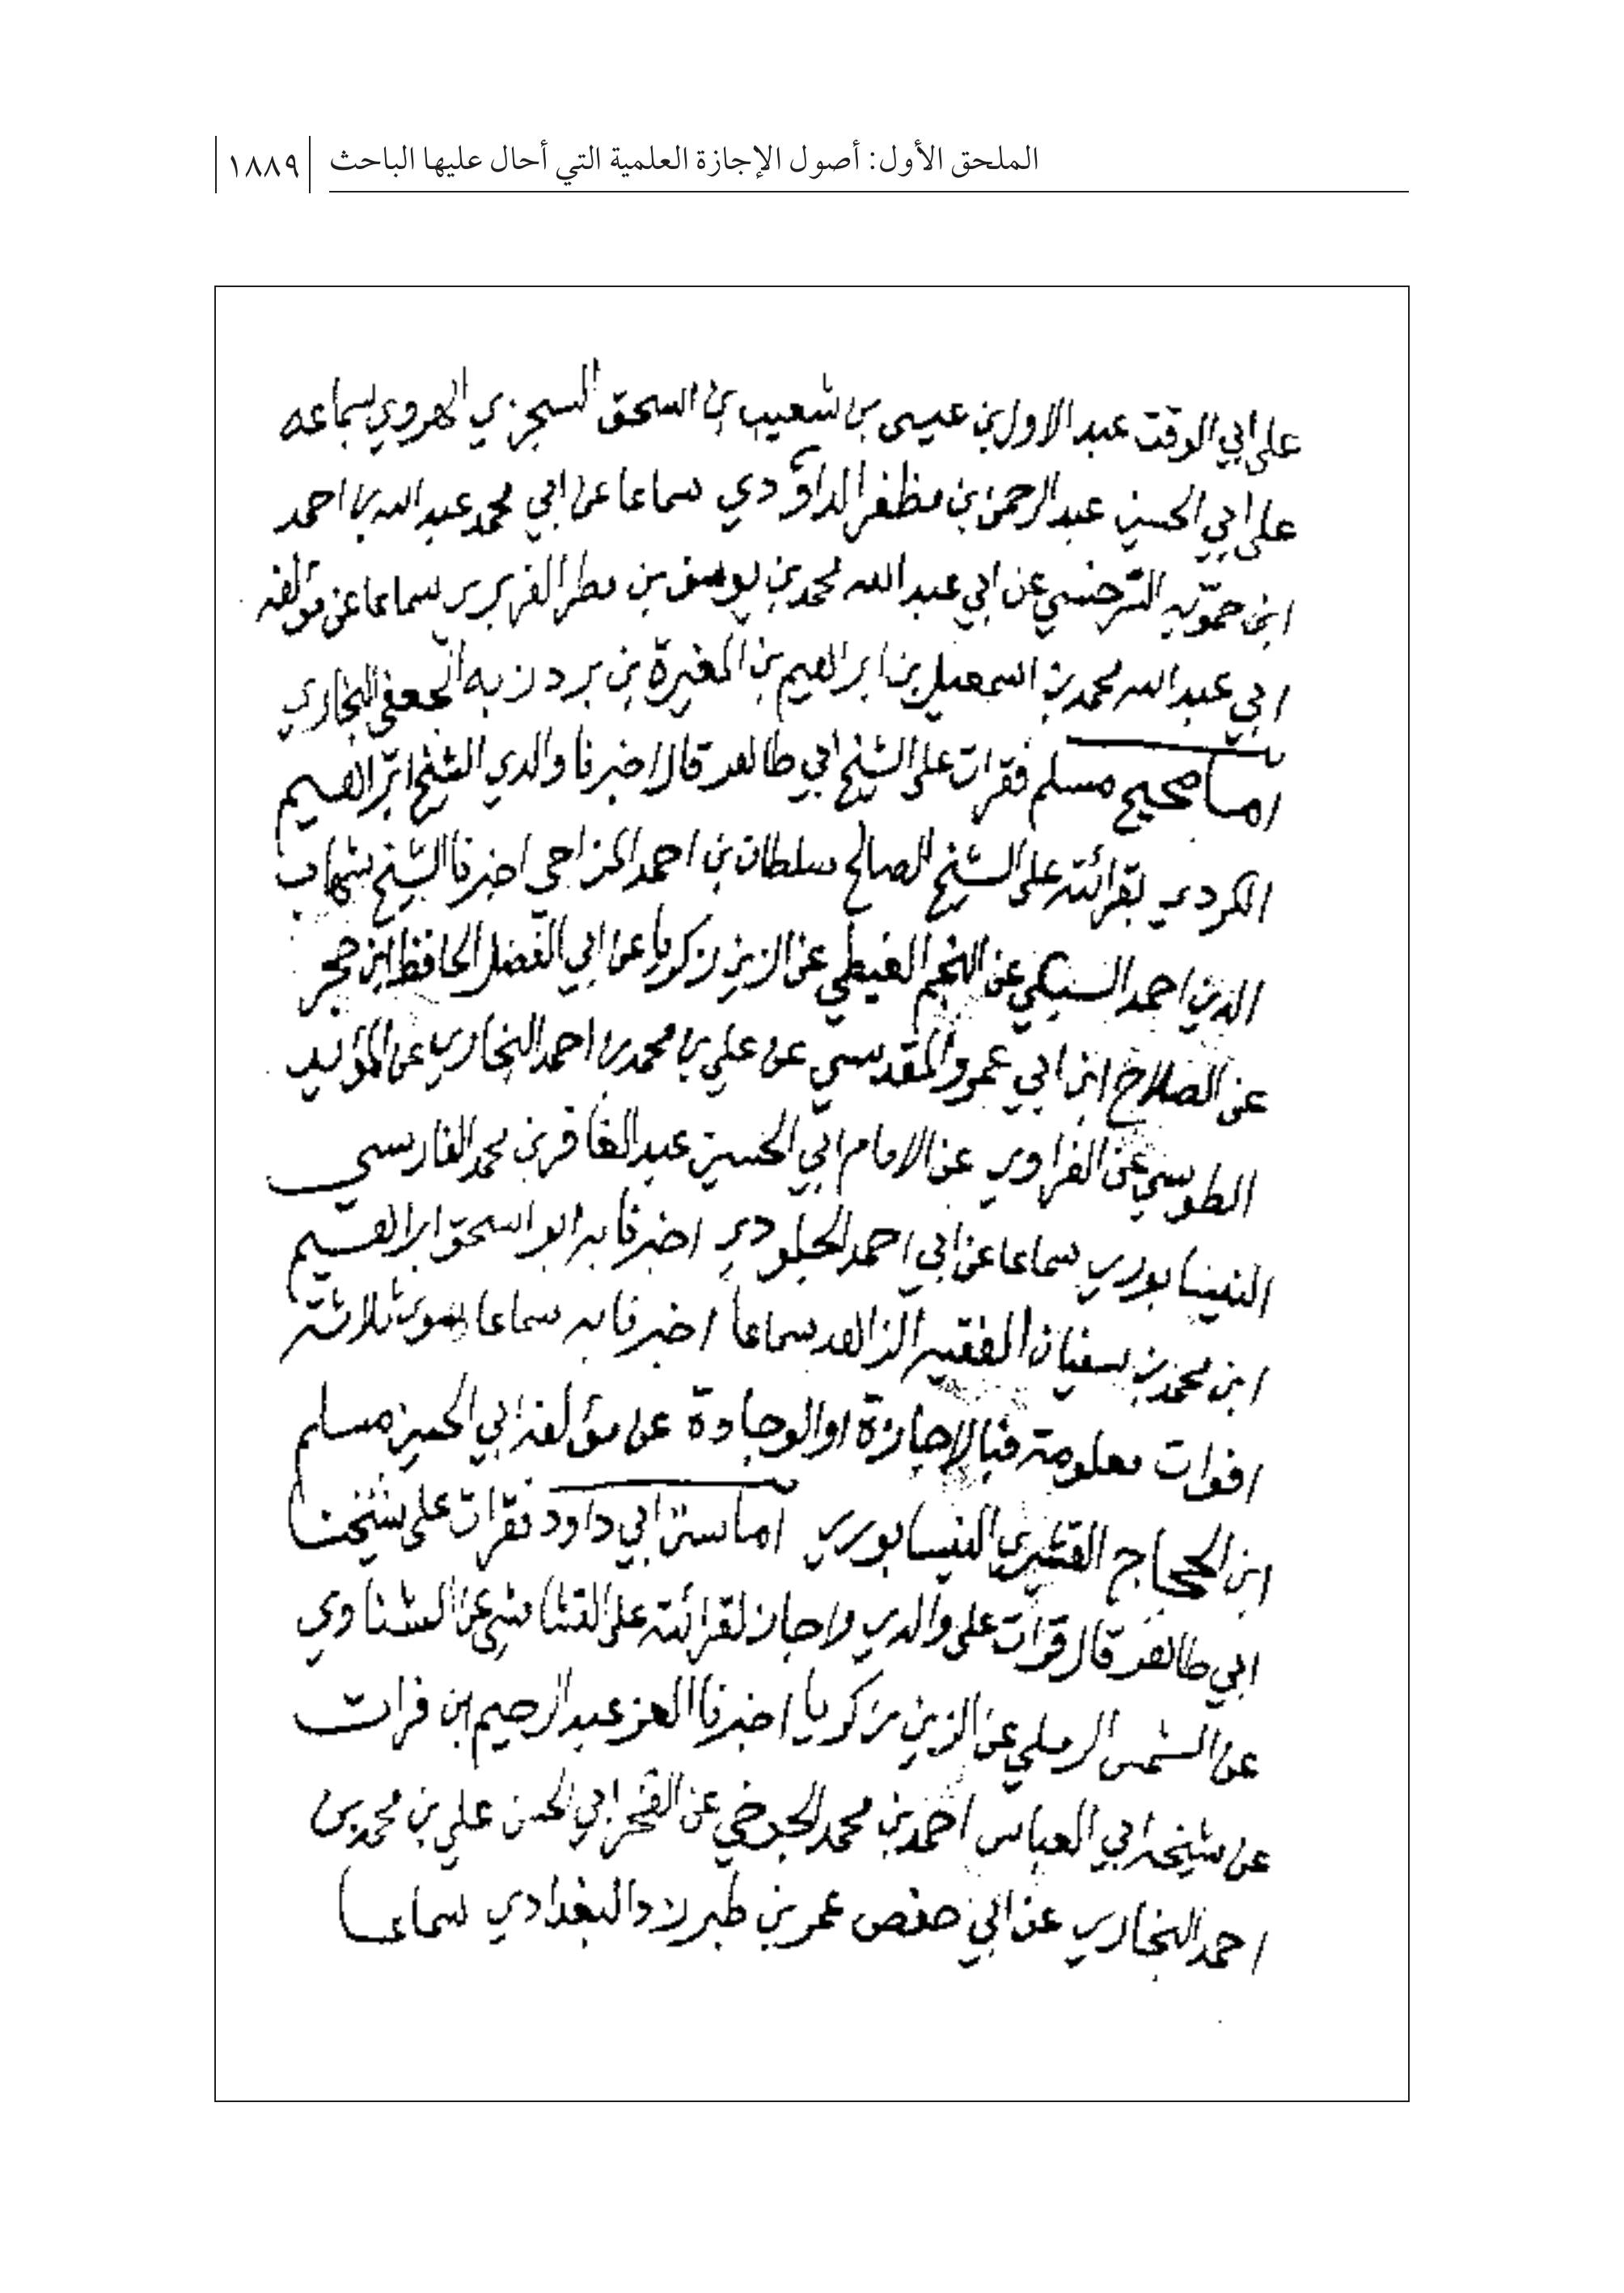 الملحق الأول: أصول الإجازة العلمية التي أحال عليها الباحث ١٨٨٩
على ابي الوقت عبد الاول بن عيسى بن شعيب بن اسحق السجزي الهروي بسماعه
على ابي الحسن عبد الرحمن بن مظفر الداوودي سماعا عن ابي محمد عبد الله بن احمد
ابن حمويه السرخسي عن ابي عبد الله محمد بن يوسف بن مطر الفربري سماعا عن مؤلفه
ابي عبد الله محمد بن اسمعيل بن ابراهيم بن المغيرة بن بردزبه الجعفي البخاري
اما صحيح مسلم فقرات على الشيخ ابي طاهر قال اخبرنا والدي الشيخ ابراهيم
الكردي بقرائته على الشيخ الصالح سلطان بن احمد المزاحي اخبرنا الشيخ شهاب
الدين احمد السبكي عن النجم الغيطي عن الزين زكريا عن ابي الفضل الحافظ ابن حجر
عن الصلاح ابن ابي عمرو المقدسي عن علي بن محمد بن احمد البخاري عن المؤيد
الطوسي عن الفراوي عن الامام ابي الحسين عبد الغافر بن محمد الفارسي
النيسابوري سماعا عن ابي احمد الجلودي اخبرنا به ابو اسحق ابراهيم
ابن محمد بن سفيان الفقيه الزاهد سماعا اخبرنا به سماعا سوى ثلاثة
افوات معلومة فبالاجازة او الوجادة عن مؤلفه ابي الحسين مسلم
ابن الحجاج القشيري النيسابوري اما سنن ابي داود فقرات على شيخنا
ابي طاهر قال قرات على والدي واجاز لقرائته على القشاشي عن الشناوي
عن الشمس الرملي عن الزين زكريا اخبرنا العز عبد الرحيم ابن فرات
عن شيخه ابي العباس احمد بن محمد الجوخي عن الفخر ابي الحسن علي بن محمد بن
احمد البخاري عن ابي حفص عمر بن طبرزد البغدادي سماعا